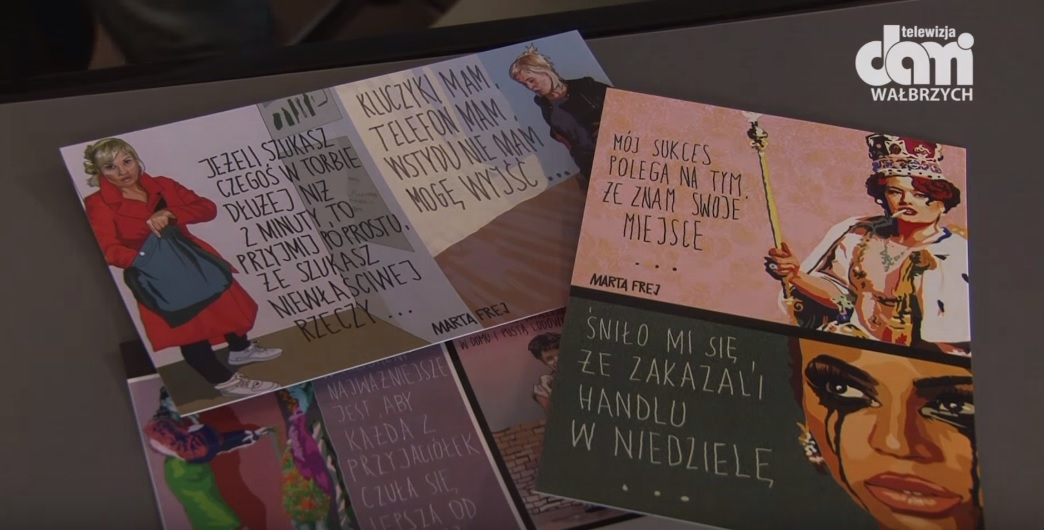 telewizja
dami
WAŁBRZYCH
JEŻELI SZUKASZ
CZEGOŚ W TORBIE
DŁUŻEJ NIŻ
2 MINUTY TO
PRZYJMIJ PO PROSTU,
ŻE SZUKASZ
NIEWŁAŚCIWEJ
RZECZY ...
KLUCZYKI MAM,
TELEFON MAM,
WSTYDU NIE MAM
MOGĘ WYJŚĆ ...
MARTA FREJ
MÓJ SUKCES
POLEGA NA TYM,
ŻE ZNAM SWOJE
MIEJSCE
...
MARTA FREJ
ŚNIŁO MI SIĘ
ŻE ZAKAZALI
HANDLU
W NIEDZIELĘ
....
W DOMU I PUSTĄ
NAJWAŻNIEJSZE
JEST, ABY
KAŻDA Z
PRZYJACIÓŁEK
CZUŁA SIĘ
LEPSZA OD